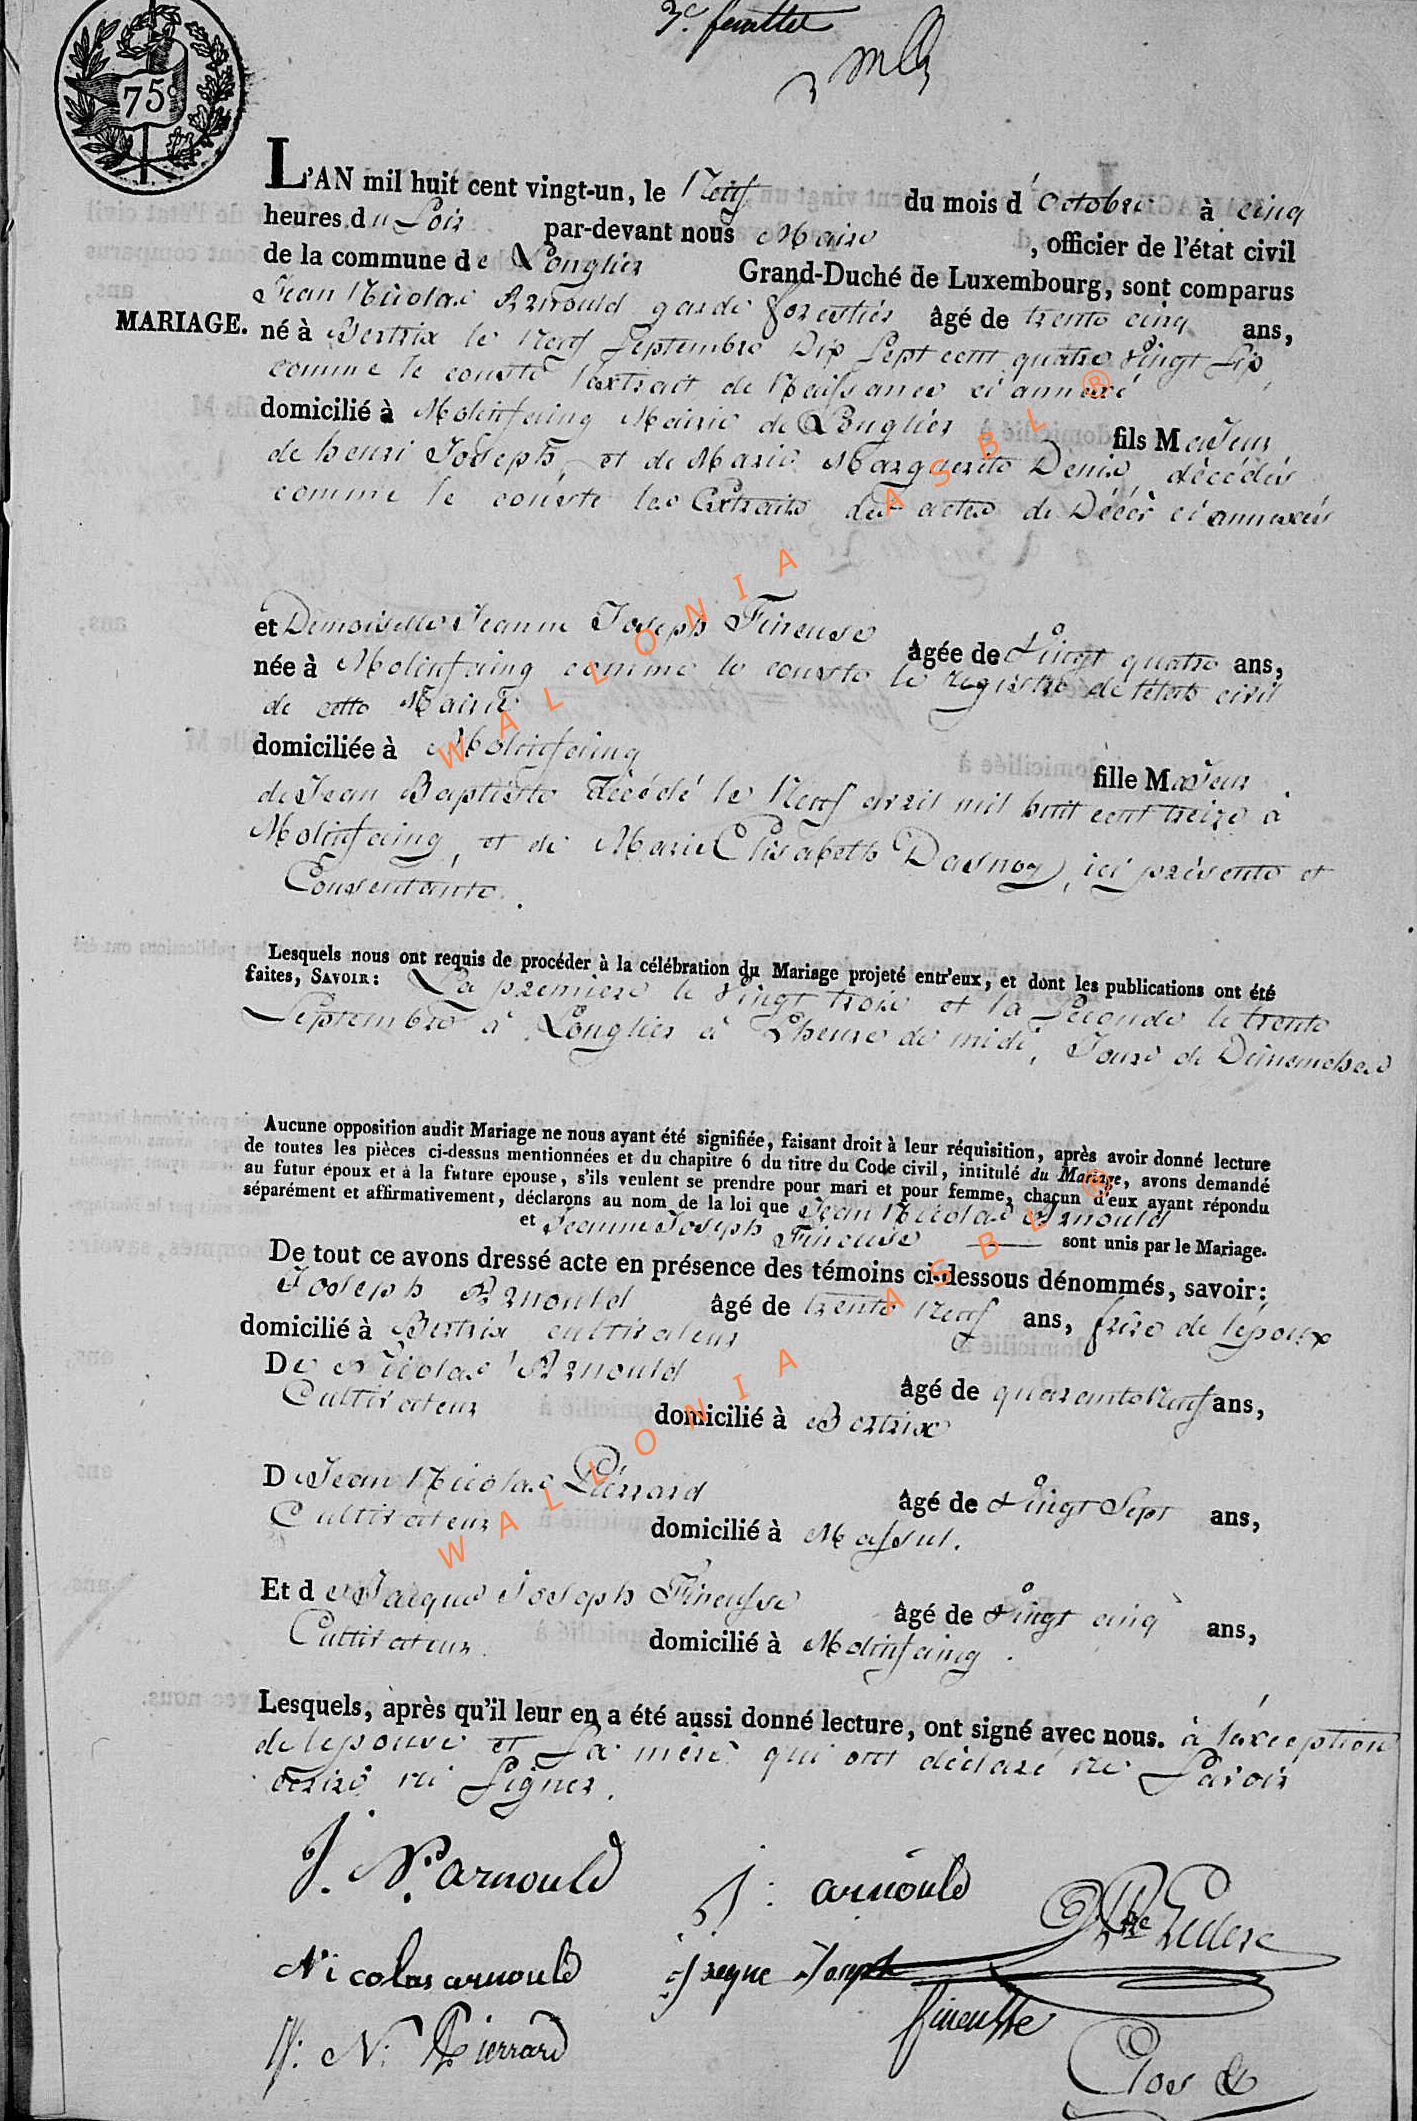 3e. feuillet
75c
L'AN mil huit cent vingt-un, le Neuf du mois d'octobre à cinq
heures du Soir par-devant nous Maire , officier de l'état civil
de la commune de Longlier Grand-Duché de Luxembourg, sont comparus
Jean Nicolas Arnould garde forestier âgé de trente cinq ans,
MARIAGE.
né à Bertrix le Neuf Septembre Dix Sept cent quatre Vingt Six
comme le conste l'extrait de Naissance ci annexé
domicilié à Molinfaing Mairie de Longlier fils MaJeur
de henri Joseph, et de Marie Marguerite Denis, décédés
comme le conste les Extraits des actes de Décès ci annexés
et Demoiselle Jeanne Joseph Fineuse âgée de Vingt quatre ans,
née à Molinfaing comme le conste le registre de l'état civil
de cette Mairie
domiciliée à Molinfaing fille MaJeur
de Jean Baptiste décédé le Neuf avril mil huit cent treize à
Molinfaing, et de Marie Elisabeth Dasnoy, ici présente et
Consentante.
Lesquels nous ont requis de procéder à la célébration du Mariage projeté entr'eux, et dont les publications ont été
faites, SAVOIR: La premiere le Vingt trois et la Seconde le trente
Septembre à Longlier à L'heure de midi, Jours de Dimenches
Aucune opposition audit Mariage ne nous ayant été signifiée, faisant droit à leur réquisition, après avoir donné lecture
de toutes les pièces ci-dessus mentionnées et du chapitre 6 du titre du Code civil, intitulé du Mariage, avons demandé
au futur époux et à la future épouse, s'ils veulent se prendre pour mari et pour femme, chacun d'eux ayant répondu
séparément et affirmativement, déclarons au nom de la loi que Jean Nicolas Arnould
et Jeanne Joseph Fineuse sont unis par le Mariage.
De tout ce avons dressé acte en présence des témoins ci-dessous dénommés, savoir:
Joseph Arnould âgé de trente Neuf ans, frère de l'époux
domicilié à Bertrix cultivateur
De Nicolas Arnould âgé de quarante Neuf ans,
Cultivateur domicilié à Bertrix
De Jean Nicolas Pierrard âgé de Vingt Sept ans,
Cultivateur domicilié à Massul.
Et de Jacque Joseph Fineusse âgé de Vingt cinq ans,
Cultivateur domicilié à Molinfaing.
Lesquels, après qu'il leur en a été aussi donné lecture, ont signé avec nous. à l'exception
de l'epouse et Sa mère qui ont déclaré ne Savoir
écrire ni Signer.
J. N. arnould J: arnould
Nicolas arnould Jacque Joseph
fineusse
J: N: Pierrard
WALLONIA ASBL ®
WALLONIA ASBL ®